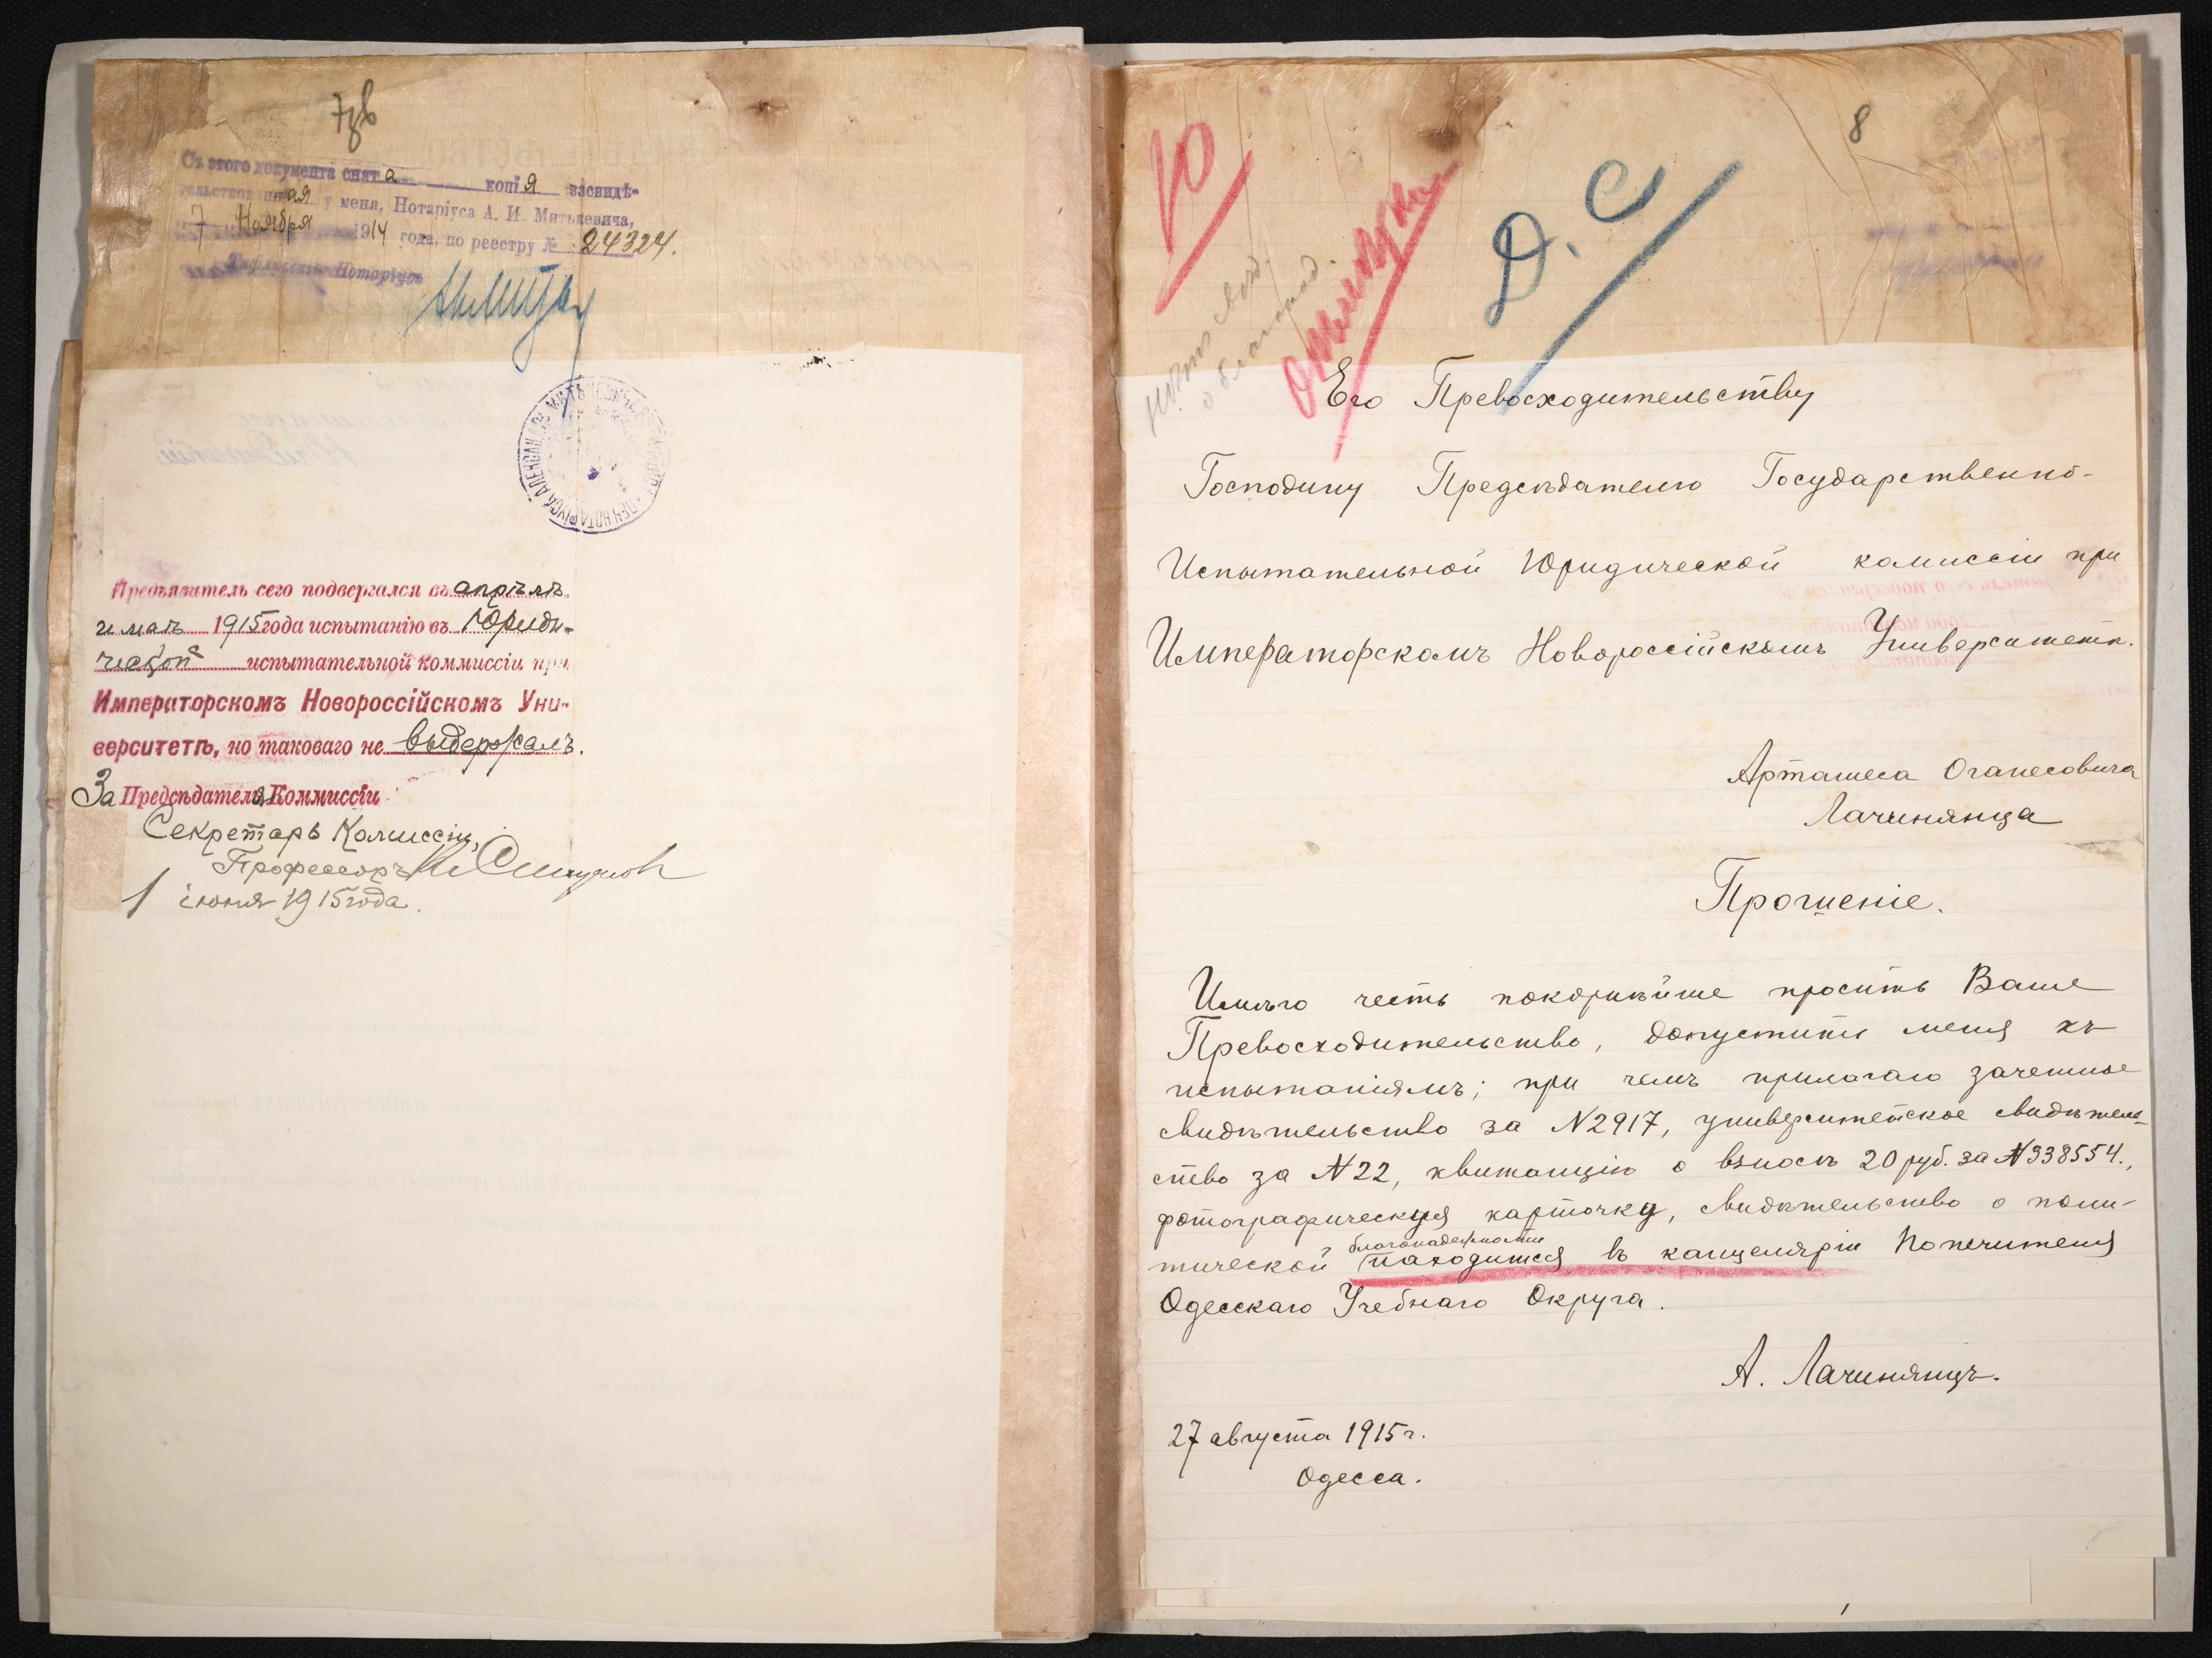 7зв
Съ этого документа снята копія засвидѣ-
тельствованная у меня, Нотаріуса А. И. Митькевича,
7 Ноября 1914 года, по реестру № 24324.
Нотаріусъ
Предъявитель сего подвергался въ апрѣлѣ
и маѣ 1915 года испытанію въ Юриди-
ческой испытательной коммиссіи при
Императорскомъ Новороссійскомъ Уни-
верситетѣ, но таковаго не выдержалъ.
За Предсѣдателя Коммиссіи
Секретарь Комиссіи,
Профессоръ
1 іюня 1915 года.
8
Ю
Д. С
нѣтъ свид.
о благонад.
Его Превосходительству
Господину Предсѣдателю Государственно-
Испытательной Юридической комиссіи при
Императорскомъ Новороссійскомъ Университетѣ.
Арташеса Оганесовича
Лачинянца
Прошеніе.
Имѣю честь покорнѣйше просить Ваше
Превосходительство, допустить меня къ
испытаніямъ; при чемъ прилагаю зачетное
свидѣтельство за N2917, университетское свидѣтель-
ство за N22, квитанцію о взносѣ 20 руб. за N338554.,
фотографическую карточку, свидѣтельство о поли-
тической благонадежности находится въ канцеляріи Попечителя
Одесскаго Учебнаго Округа.
А. Лачинянцъ.
27 августа 1915 г.
Одесса.